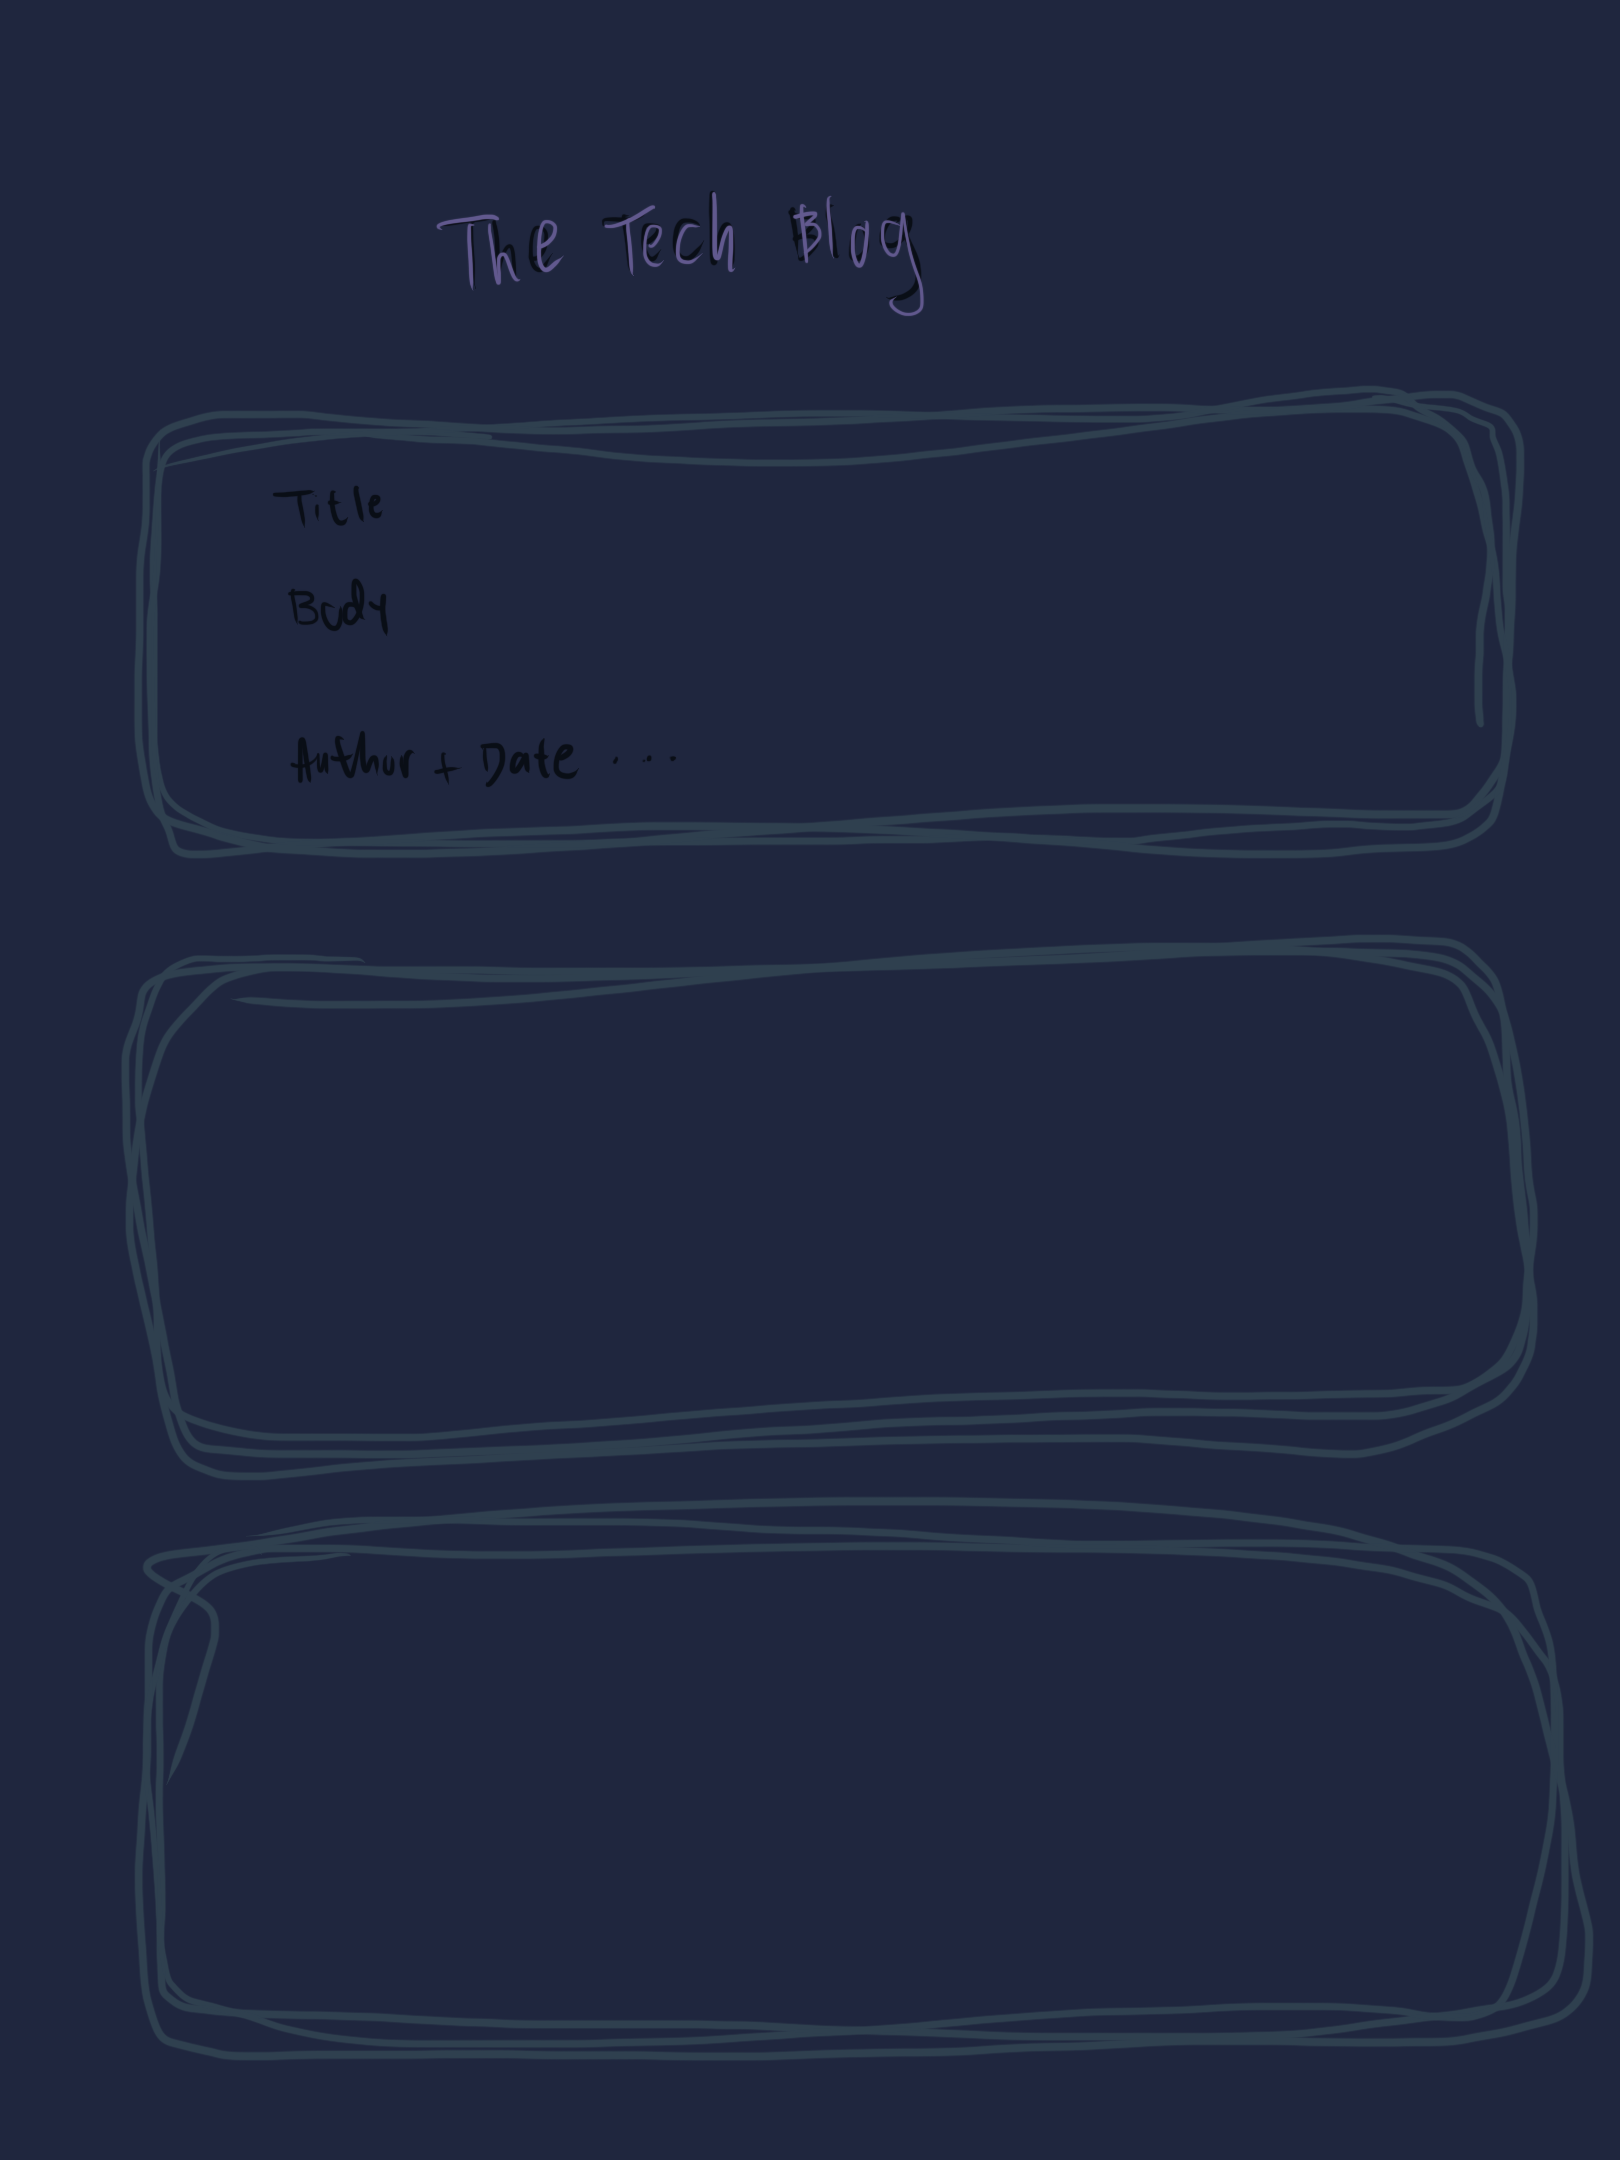 The Tech Blog
Title
Body
Author + Date ...